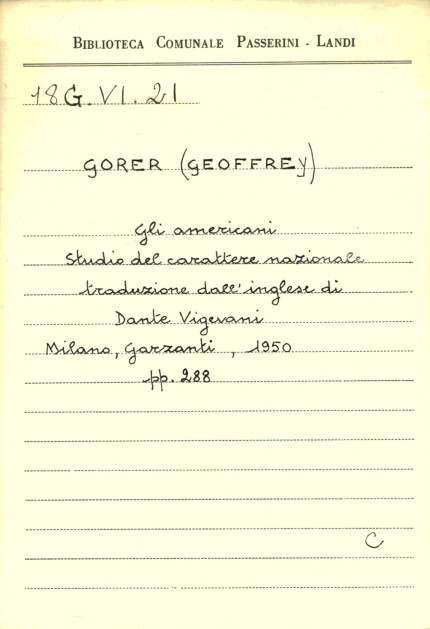 BIBLIOTECA COMUNALE PASSERINI - LANDI
18G.VI.21
GORER (GEOFFREY)
Gli americani
Studio del carattere nazionale
traduzione dall'inglese di
Dante Vigevani
Milano, Garzanti , 1950
pp. 288
C